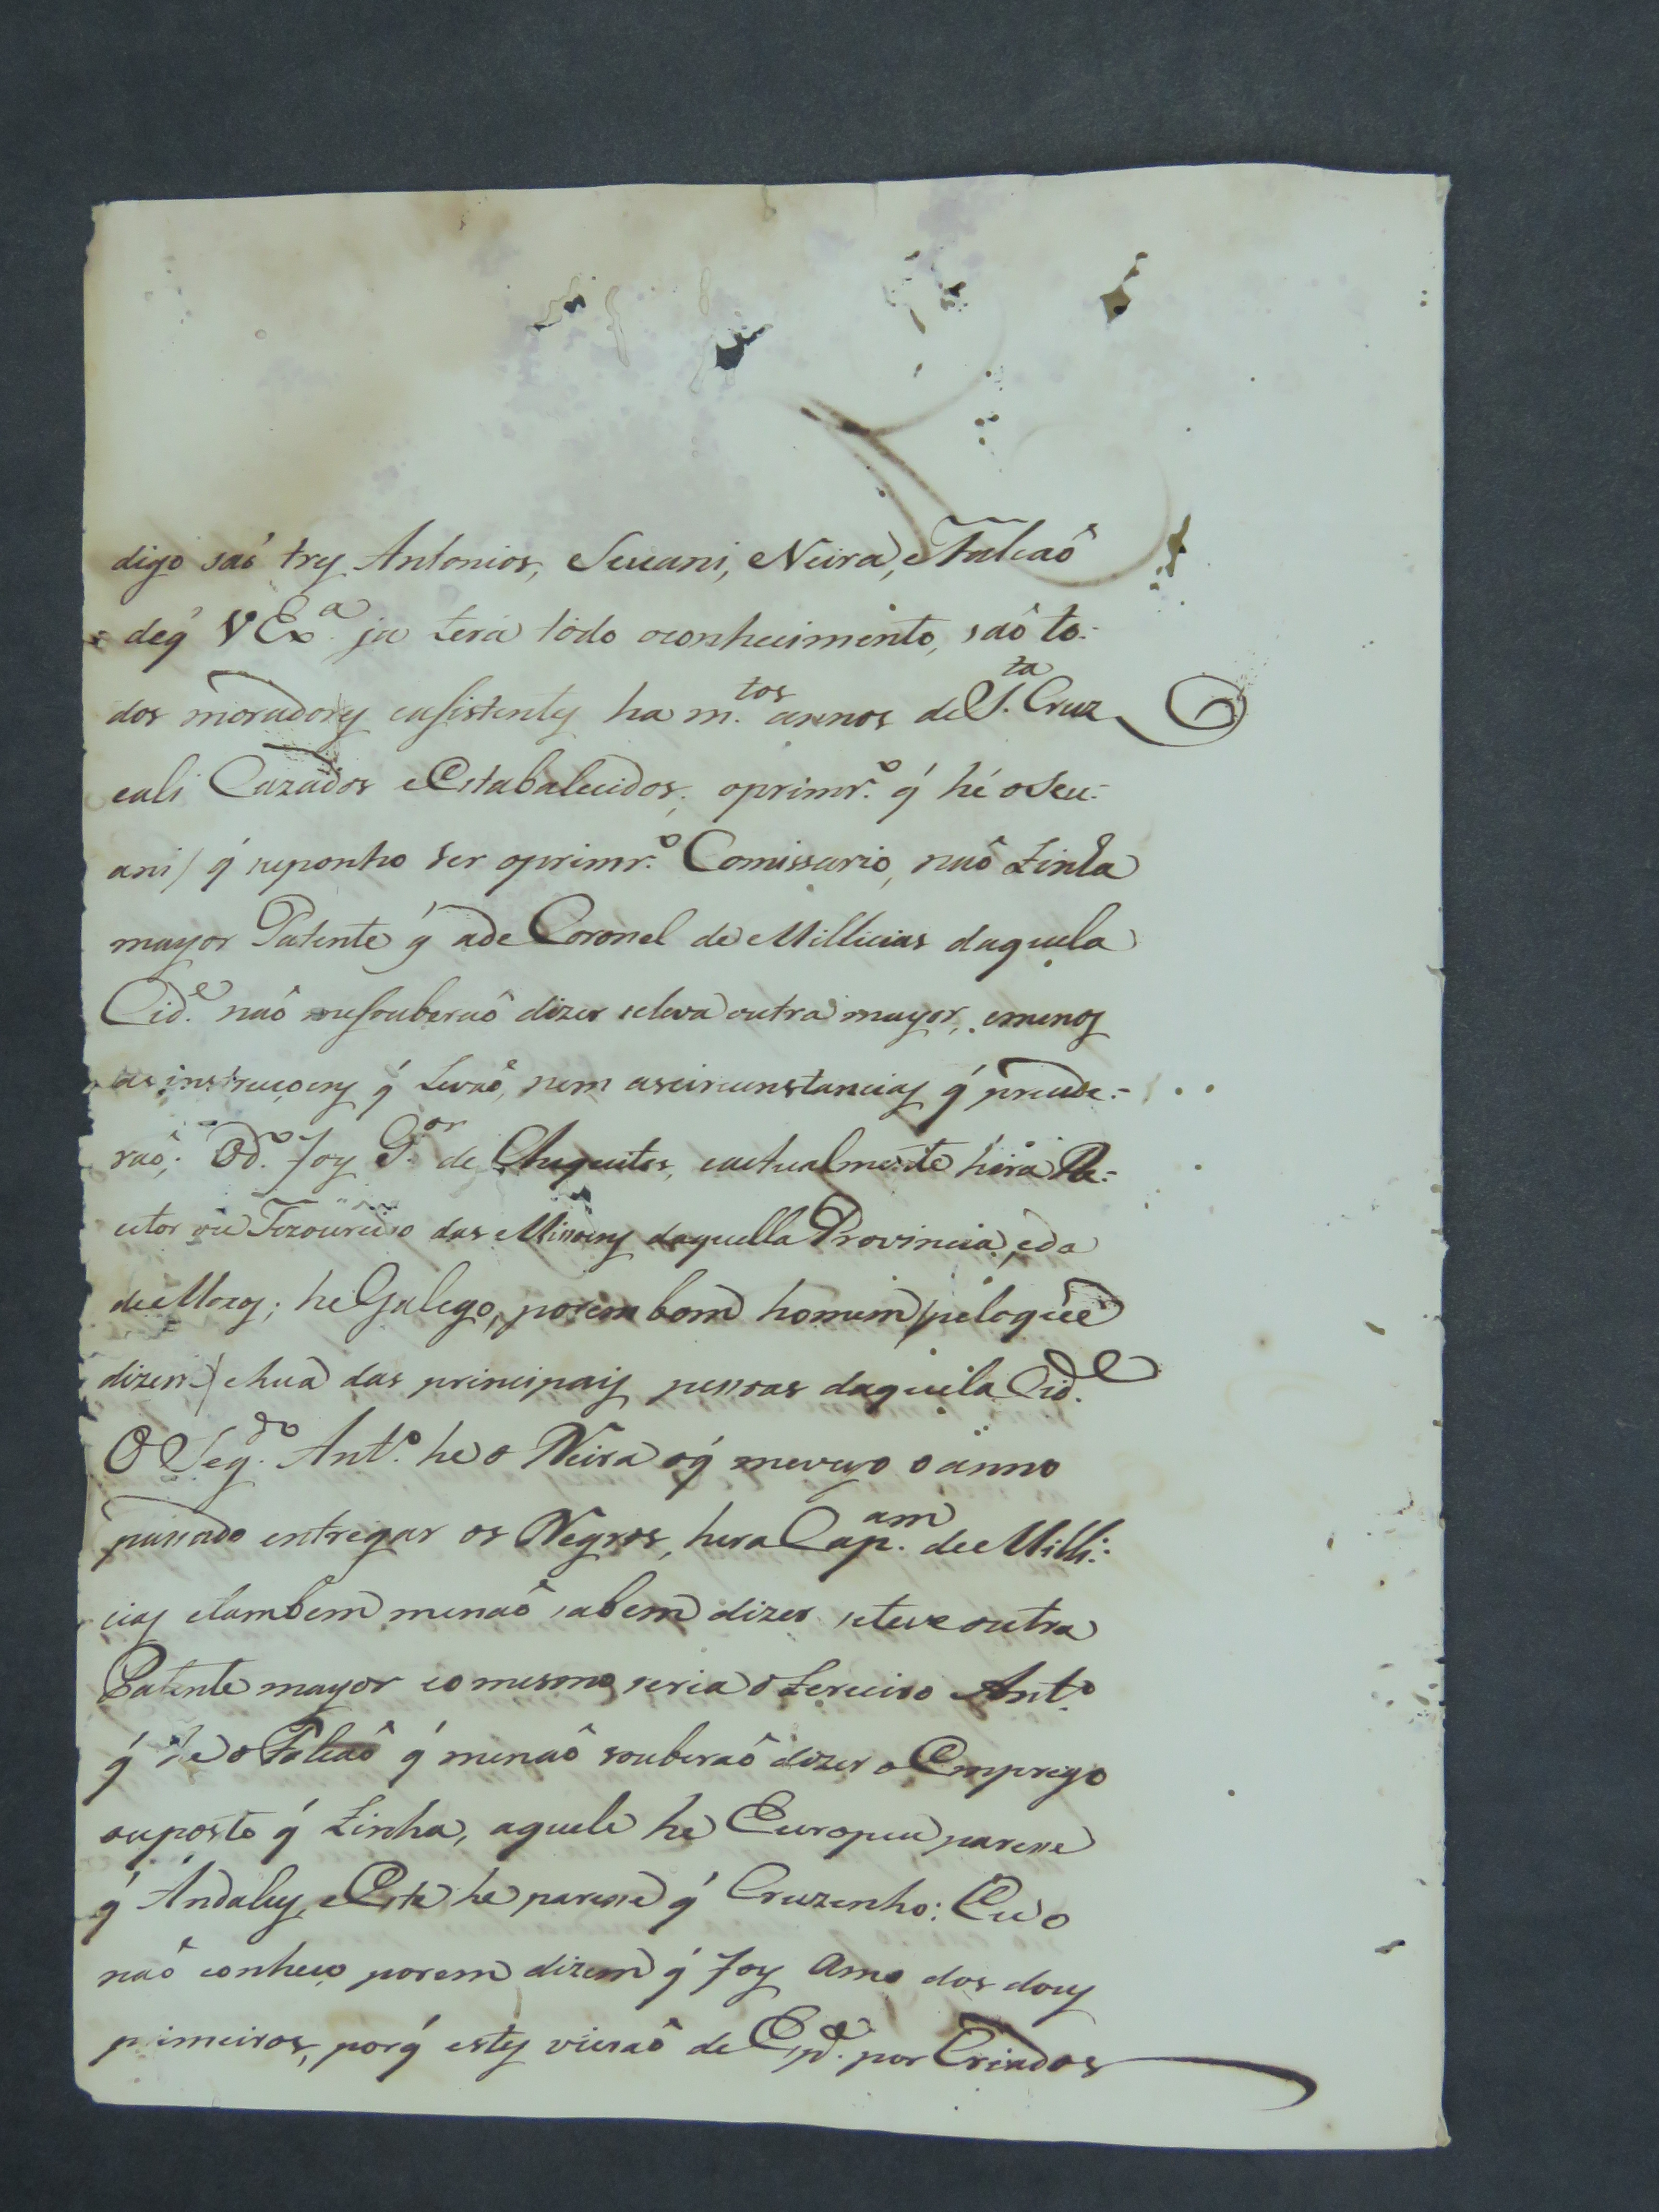 digo saõ trez Antonios, Seuani, eNeira, eFalcaõ
deq̃ VEx.ª ja terá todo oconhecimento, saõ to-
dos moradorez easistentez ha m.tos annos de S.ta Cruz
eali Cazados eEstabalecidos; oprimr.º q́ hé oSeu-
ani/ q́ suponho ser oprimr.º Comissario, naõ tinha
mayor Patente q́ ade Coronel de Millicias daquela
Cid.e naõ mesouberaõ dizer seleva outra mayor, emenos
as instruçoens q́ Levaõ, nem ascircunstancias q́ precede-
raõ; Od.º foy G.or de Chiquitos, eactualmente hera Re-
cetor ou Tezoureiro das Missoens daquella Provincia, eda
deMoxos; heGalego, porem bom homem/peloque
dizem/ ehua das principais pessoas daquela Cid.e
O Seg.do Ant.º he o Neira oq́ meveyo o anno
passado entregar os Negros, hera Cap.am deMilli-
cias etambem menaõ sabem dizer seteve outra
Patente mayor eo mesmo seria oterceiro Ant.º
q́ he oFalcaõ q́ menaõ souberaõ dizer oEmprego
ouposto q́ tinha, aquele he Europeu paresse
q́ Andaluz, eEste he paresse q́ Cruzenho: Eu o
naõ conheço porem dizem q́ foy Amo dos doys
primeiros, porq́ estez vieraõ de Esp.ª por Criados